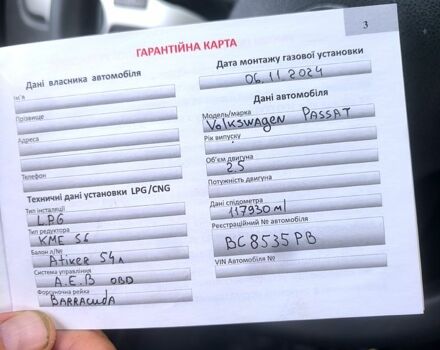 3
ГАРАНТІЙНА КАРТА
Дані власника автомобіля
Ім'я
Прізвище
Адреса
Телефон
Технічні дані установки LPG/CNG
Тип інсталяції
LPG
Тип редуктора
KME S6
Балон л/№
Atiker 54л
Система управління
A.E.B OBD
Форсуночна рейка
BARRACUDA
Дата монтажу газової установки
06.11.2024
Дані автомобіля
Модель/марка
Volkswagen PASSAT
Рік випуску
Об'єм двигуна
2.5
Потужність двигуна
Дані спідометра
117930 ml
Реєстраційний № автомобіля
BC8535PB
VIN Автомобіля №